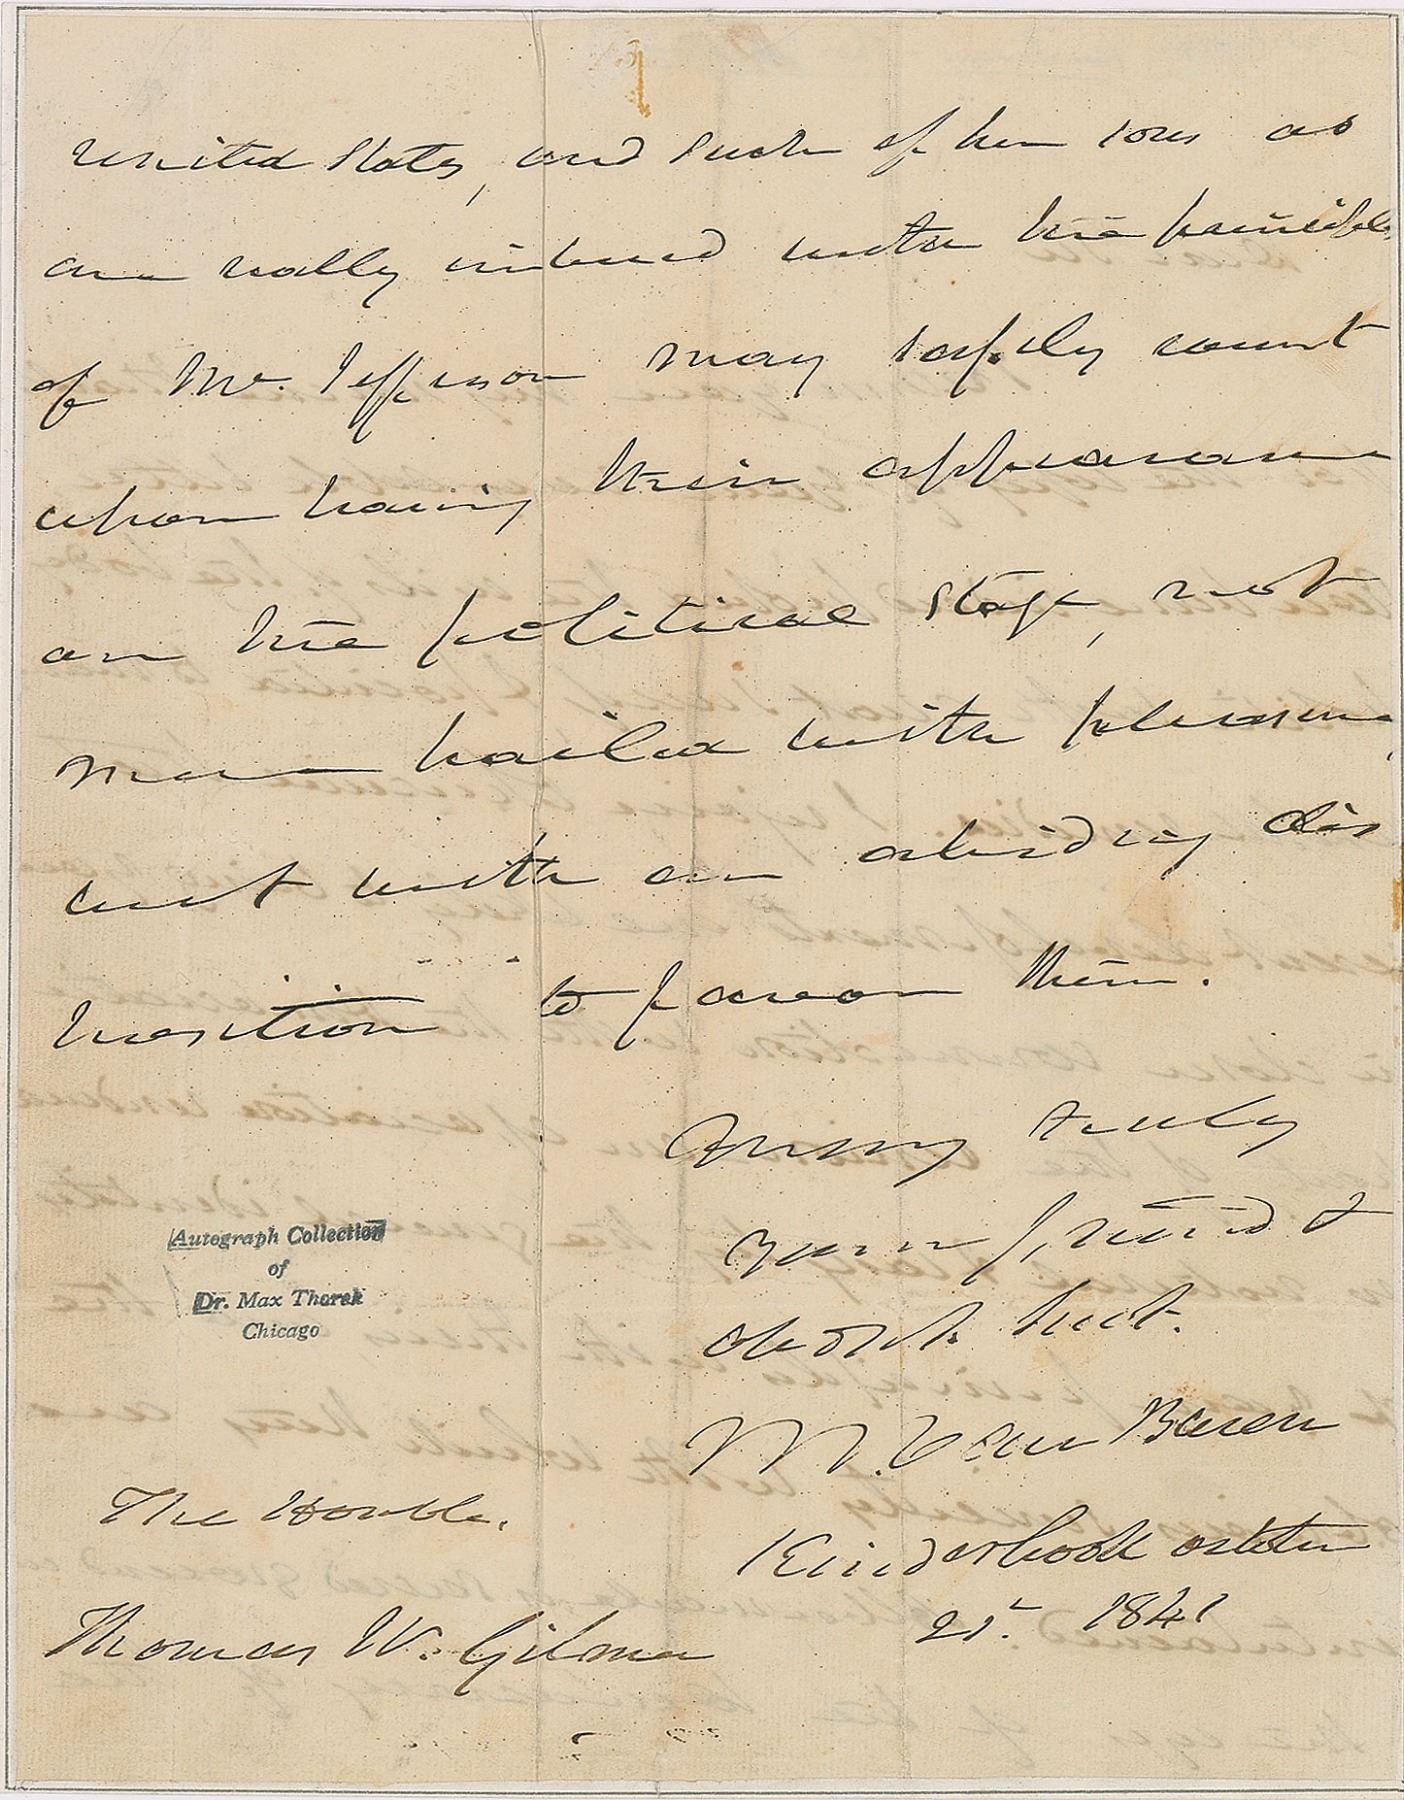 United States, and such of her sons as
are really imbued with the principles
of Mr. Jefferson may safely count
upon having their appearance
on the political stage, not
mere hailed with pleasure,
but with an abiding dis
position to favor them.
Very truly
your friend &
obedt. Servt.
M. Van Buren
Kinderhook October
21st. 1841
The Honble.
Thomas W. Gilmer
Autograph Collection
of
Dr. Max Thorek
Chicago